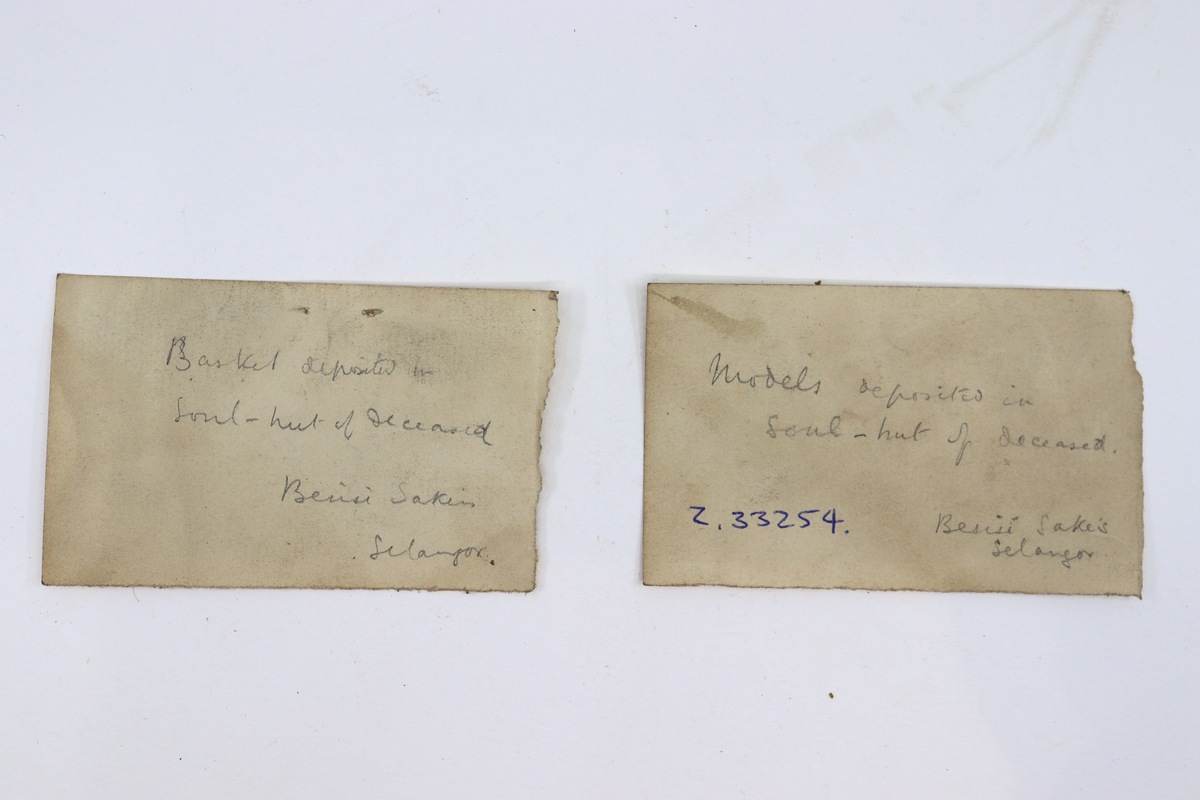 Basket deposited in
Soul-hut of deceased
Besisi Sakeis
Selangor.
Models deposited in
Soul-hut of deceased.
Z.33254.
Besisi Sakeis
Selangor